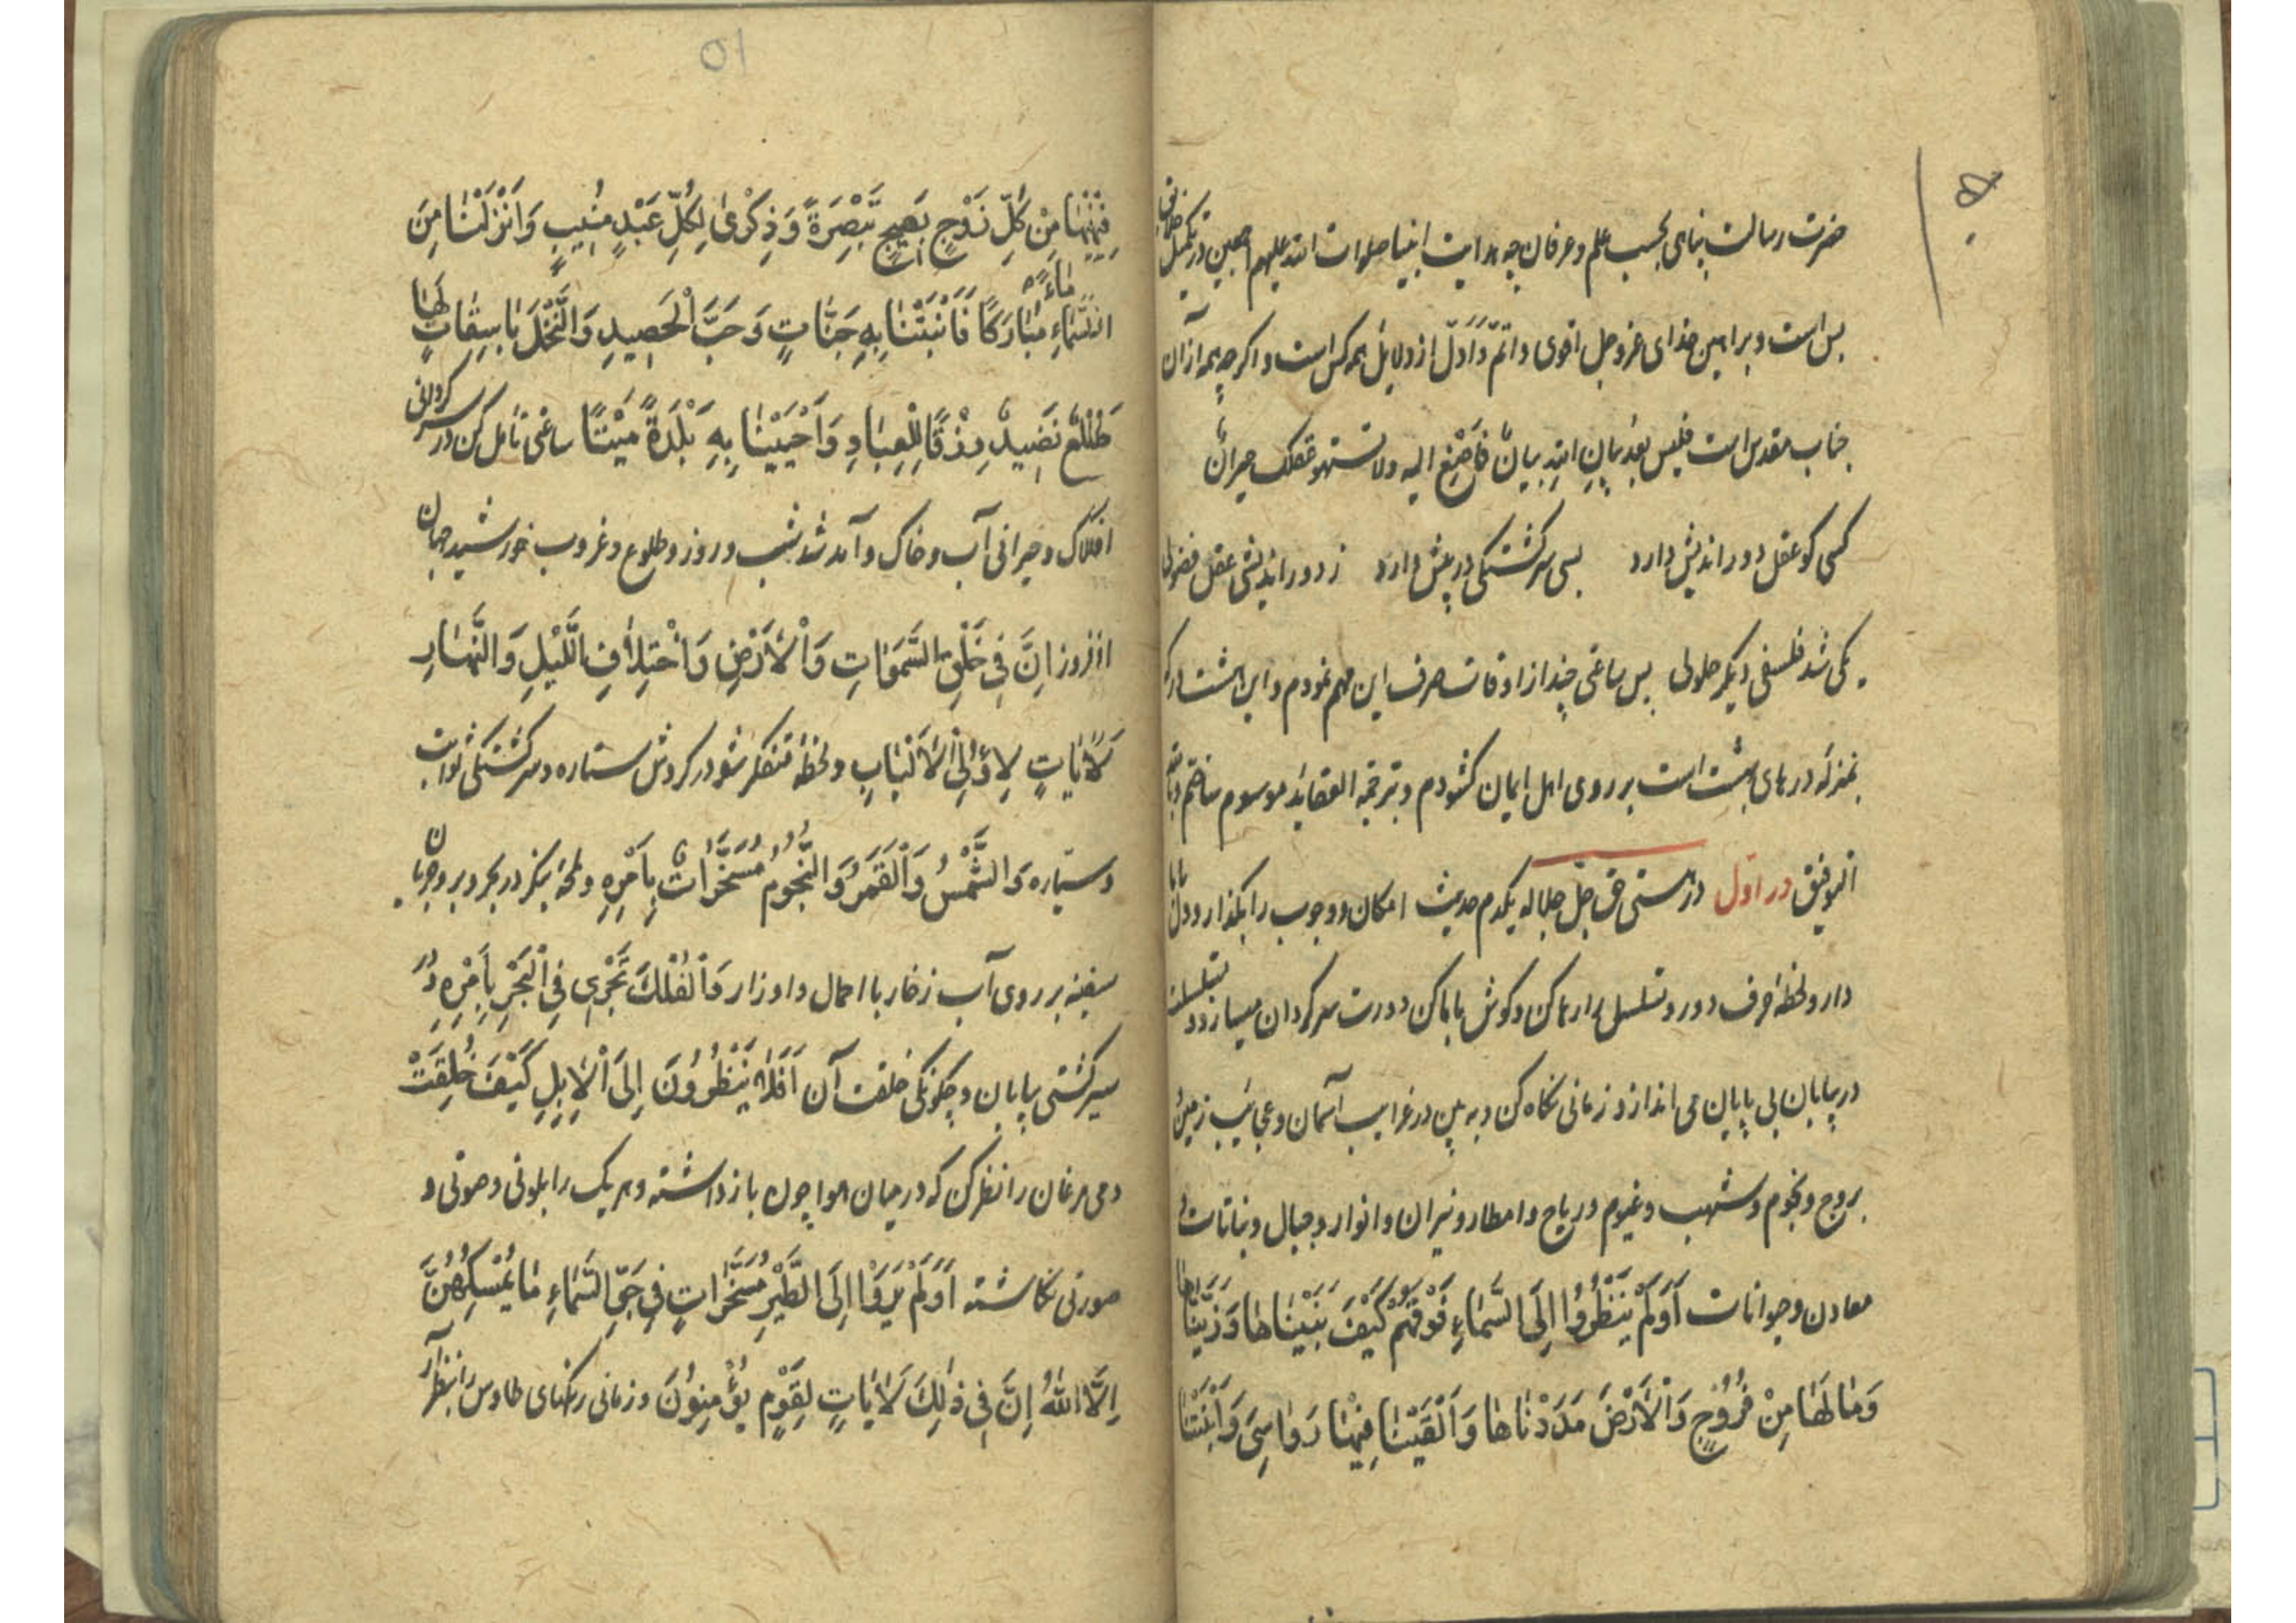 ۵۰
حضرت رسالت پناهی بحسب علم و عرفان چه هدایت انبیا صلوات الله علیهم اجمعین در تکمیل خلایق
بس است و براهین خدای عز و جل اقوی و اتمّ وَاَدلّ از دلایل همه کس است و اگر چه همه از آن
جناب مقدس است فلیس بعدَ بیانِ اللهِ بیانٌ فَاَصْنِغ الیه ولا تستهو عقلک حیرانٌ
کسی کو عقل دور اندیش دارد بسی سرگشتگی در پیش دارد ز دور اندیشی عقل فضولی
یکی شد فلسفی دیگر حلولی پس ساعتی چند از اوقات صرف این مهم نمودم و این هشت در که
بمنزلهٔ درهای بهشت است بر روی اهل ایمان گشودم و بترجمة العقاید موسوم ساختم و بالله
التوفیق در اوّل در هستی حق جلّ جلاله یکدم حدیث امکان و وجوب را بگذار و دل بابا
دار و لحظهٔ حرف دور و تسلسل را رها کن و گوش بابا کن دورت سرگردان میسازد و تسلسلت
در بیابان بی پایان می اندازد زمانی نگاه کن و به بین در غرایب آسمان و عجایب زمین و
بروج و نجوم و شهب و غیوم و ریاح و امطار و نیران و انوار و جبال و نباتات و
معادن و حیوانات اَوَلَمْ یَنْظُرُوا اِلَی السَّمَاءِ فَوْقَهُمْ کَیْفَ بَنَیْنَاهَا وَزَیَّنَّاهَا
وَمَا لَهَا مِنْ فُرُوجٍ وَالْاَرْضَ مَدَدْنَاهَا وَاَلْقَیْنَا فِیهَا رَوَاسِیَ وَاَنْبَتْنَا
۵۱
فِیهَا مِنْ کُلِّ زَوْجٍ بَهِیجٍ تَبْصِرَةً وَذِکْرَی لِکُلِّ عَبْدٍ مُنِیبٍ وَاَنْزَلْنَا مِنَ
السَّمَاءِ مَاءً مُبَارَکًا فَاَنْبَتْنَا بِهِ جَنَّاتٍ وَحَبَّ الْحَصِیدِ وَالنَّخْلَ بَاسِقَاتٍ لَهَا
طَلْعٌ نَضِیدٌ رِزْقًا لِلْعِبَادِ وَاَحْیَیْنَا بِهِ بَلْدَةً مَیْتًا ساعتی تامل کن در سرگردانی
افلاک و حیرانی آب و خاک و آمد شد شب و روز و طلوع و غروب خورشید جهان
افروز اِنَّ فِی خَلْقِ السَّمَوَاتِ وَالْاَرْضِ وَاخْتِلَافِ اللَّیْلِ وَالنَّهَارِ
لَاٰیَاتٍ لِاُولِی الْاَلْبَابِ و لحظهٔ متفکر شو در گردش ستاره و سرگشتگی ثوابت
و سیّاره وَالشَّمْسُ وَالْقَمَرُ وَالنُّجُومُ مُسَخَّرَاتٌ بِاَمْرِهِ و لمحهٔ بنگر در بحر و بر و جریان
سفینه بر روی آب زخار با احمال و اوزار وَالْفُلْکَ تَجْرِی فِی الْبَحْرِ بِاَمْرِهِ و در
سیر کشتی بیابان و چگونگی خلقت آن اَفَلَا یَنْظُرُونَ اِلَی الْاِبِلِ کَیْفَ خُلِقَتْ
دمی مرغان را نظر کن که در میان هوا چون باز داشته و هر یک را بلونی و صوتی و
صورتی نگاشته اَوَلَمْ یَرَوْا اِلَی الطَّیْرِ مُسَخَّرَاتٍ فِی جَوِّ السَّمَاءِ مَا یُمْسِکُهُنَّ
اِلَّا اللّٰهُ اِنَّ فِی ذٰلِکَ لَاٰیَاتٍ لِقَوْمٍ یُؤْمِنُونَ و زمانی رنگهای طاوس را بنظر آر